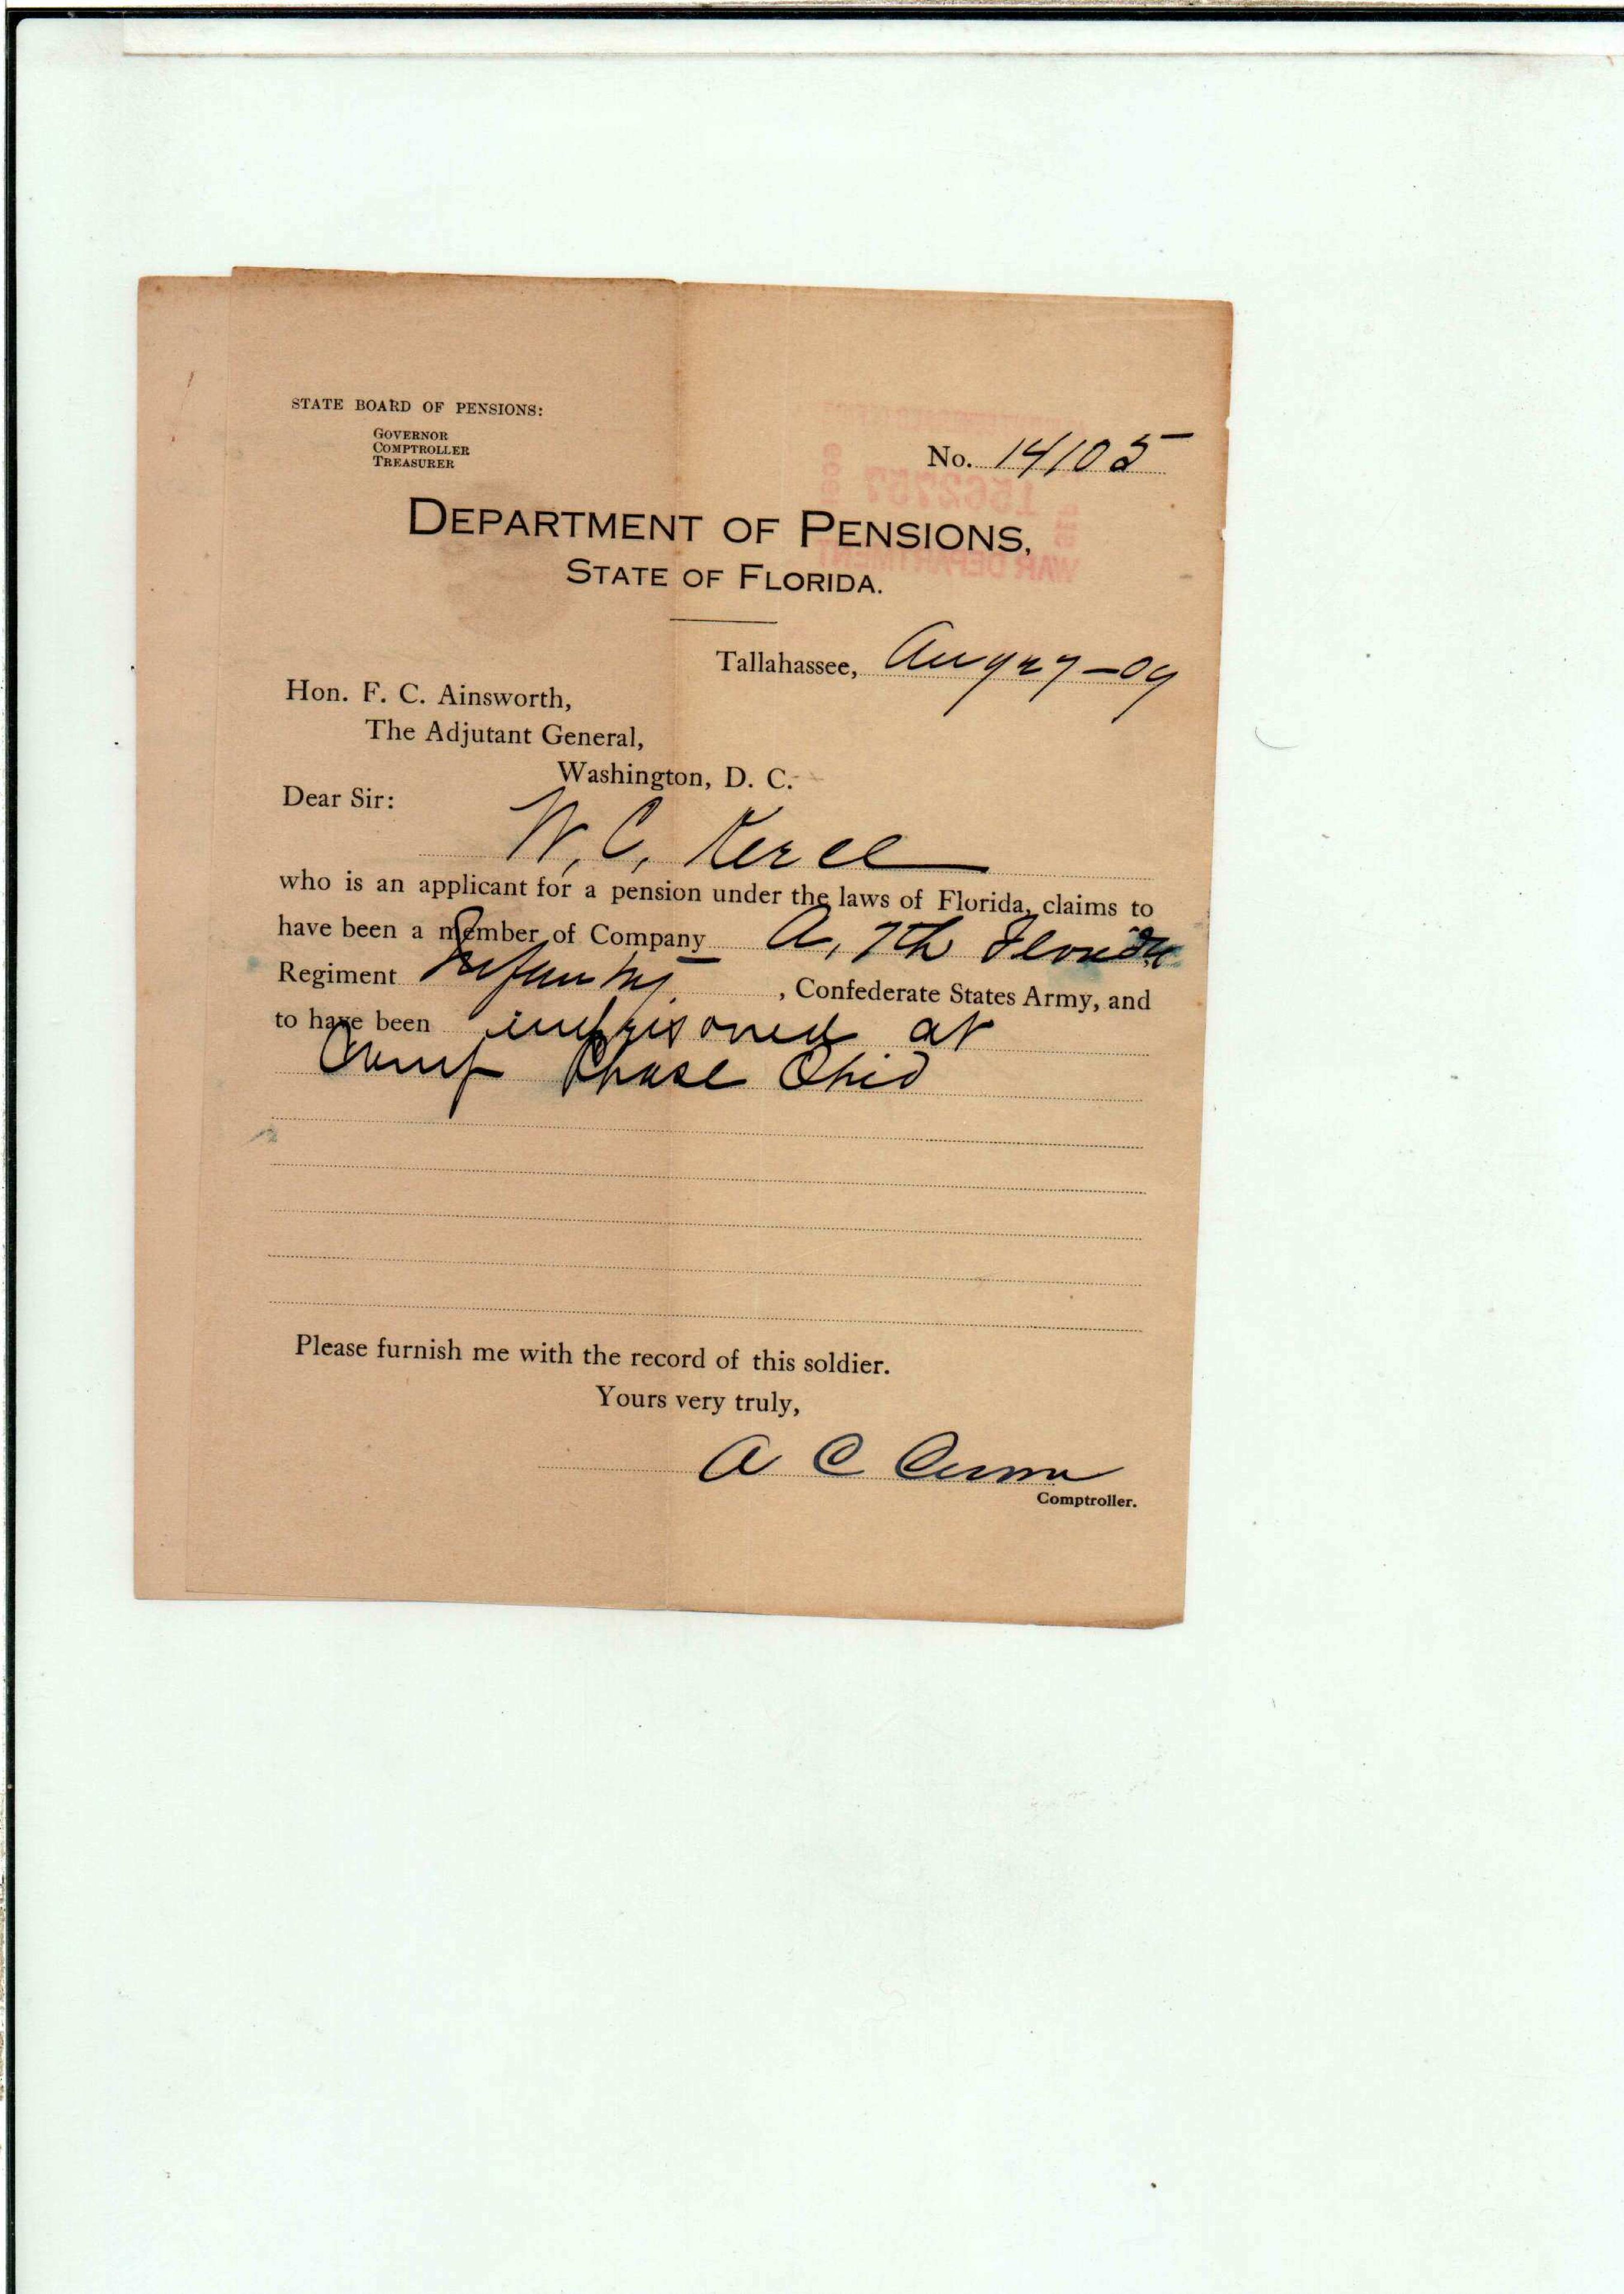 STATE BOARD OF PENSIONS:
GOVERNOR
COMPTROLLER
TREASURER
No. 14105
DEPARTMENT OF PENSIONS,
STATE OF FLORIDA.
Tallahassee, Aug 27-09
Hon. F. C. Ainsworth,
The Adjutant General,
Washington, D. C.
Dear Sir:
W. C. Kerce
who is an applicant for a pension under the laws of Florida, claims to
have been a member of Company A, 7th Florida
Regiment Infantry, Confederate States Army, and
to have been imprisoned at
Camp Chase Ohio
Please furnish me with the record of this soldier.
Yours very truly,
A C Croom
Comptroller.
WAR DEPARTMENT